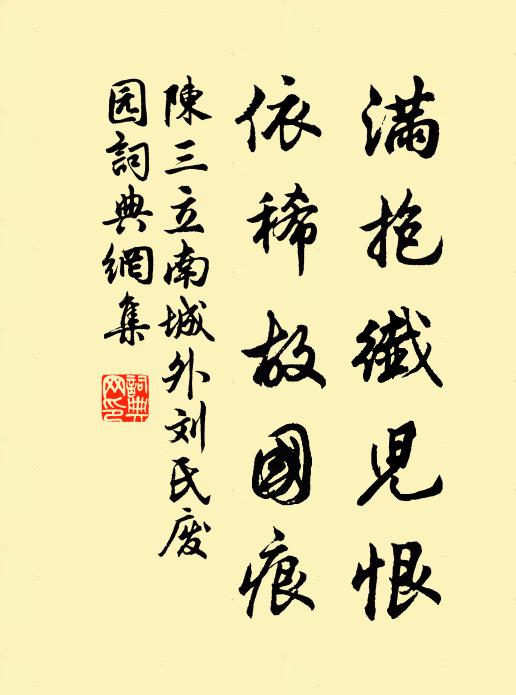 滿抱纖兒恨
依稀故國痕
陳三立南城外刘氏废
园詞典網集
詞典
网印